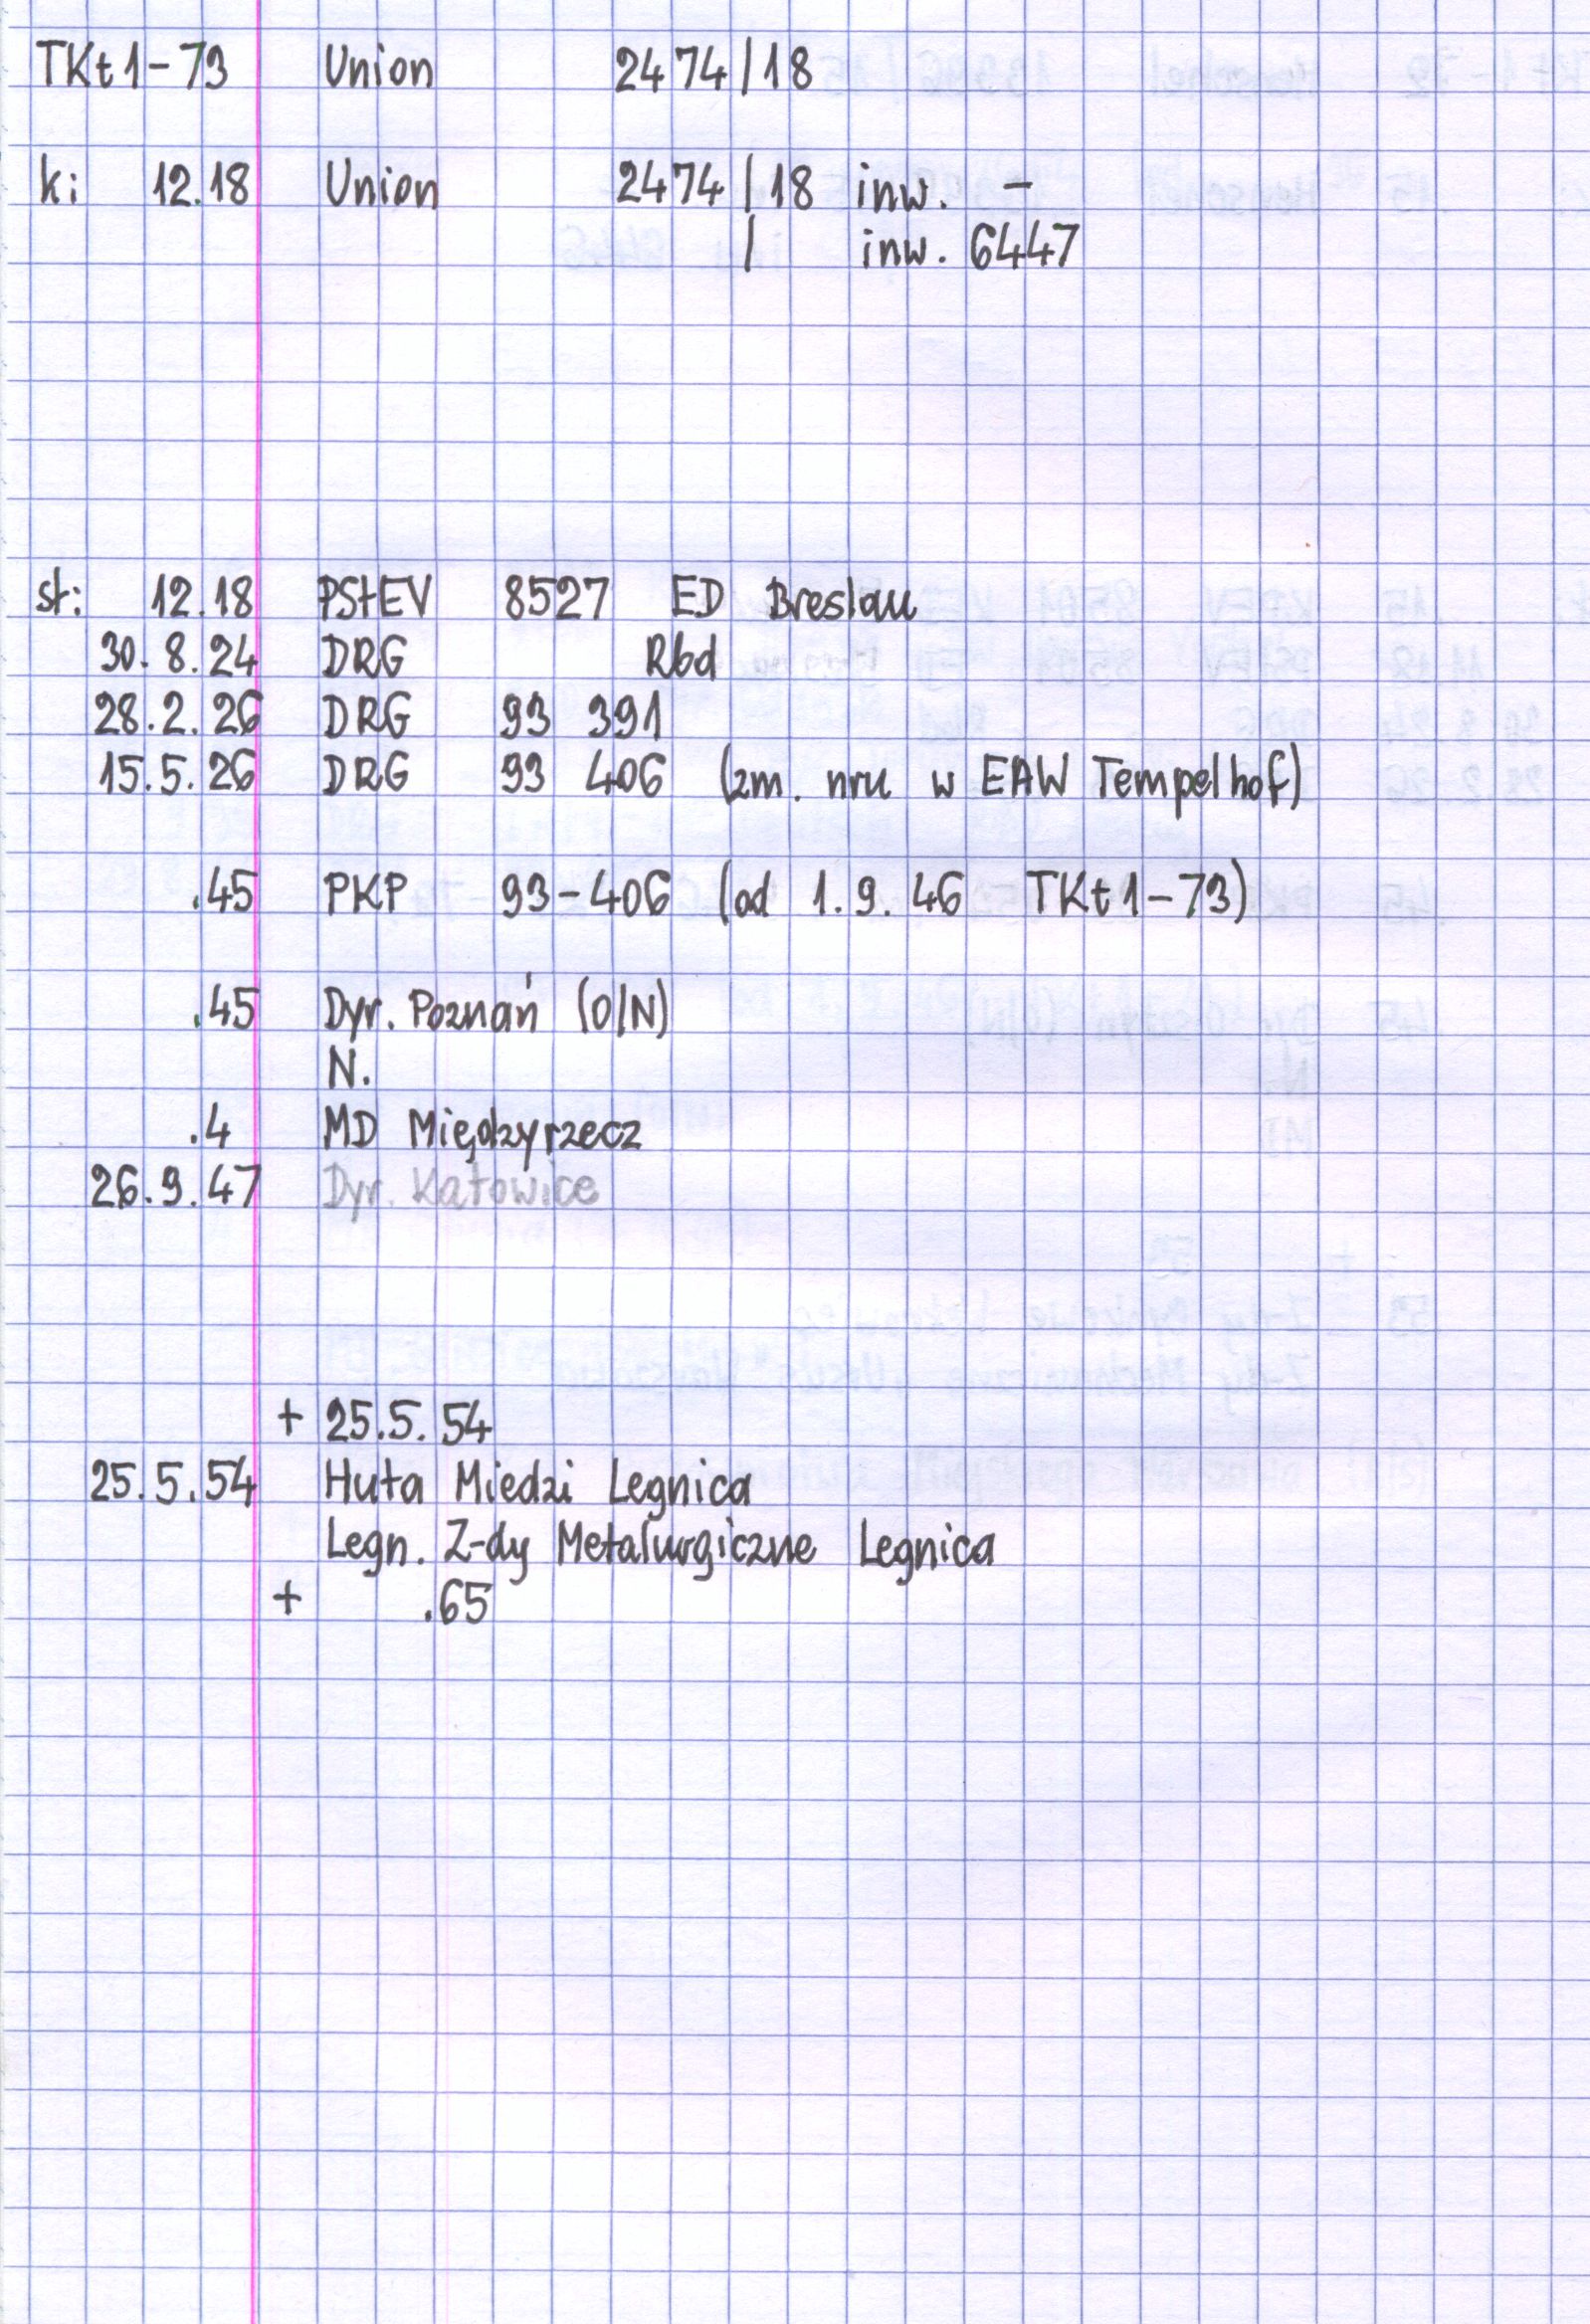 TKt1-73 Union 2474/18
k: 12.18 Union 2474/18 inw. -
/ inw. 6447
st: 12.18 PStEV 8527 ED Breslau
30.8.24 DRG Rbd
28.2.26 DRG 93 391
15.5.26 DRG 93 406 (zm. nru w EAW Tempelhof)
.45 PKP 93-406 (od 1.9.46 TKt1-73)
.45 Dyr. Poznań (O/N)
N.
.4 MD Międzyrzecz
26.9.47 Dyr. Katowice
+ 25.5.54
25.5.54 Huta Miedzi Legnica
Legn. Z-dy Metalurgiczne Legnica
+ .65